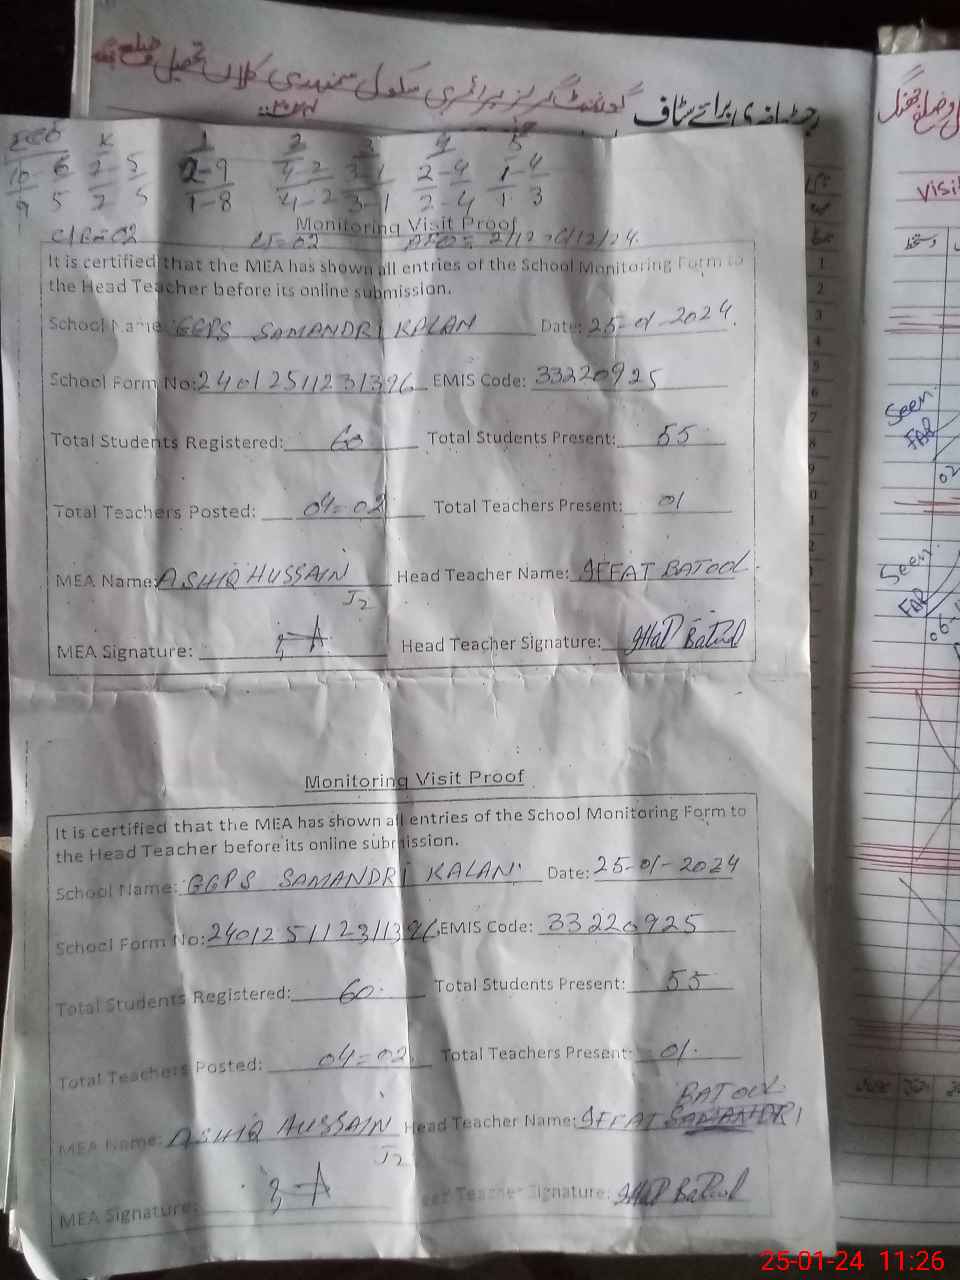 گورنمنٹ گرلز پرائمری سکول سمندری کلاں تحصیل و ضلع
رجسٹر حاضری برائے سٹاف
ECE K 1 2 3 4 5
10 6 2 5 2-9 4-2 3-1 2-4 1-4
9 5 2 5 1-8 4-2 3-1 2-4 1 3
Monitoring Visit Proof
It is certified that the MEA has shown all entries of the School Monitoring Form to
the Head Teacher before its online submission.
School Name: GGPS SAMANDRI KALAN Date: 25-01-2024
School Form No: EMIS Code: 33220925
Total Students Registered: 60 Total Students Present: 55
Total Teachers Posted: 04=02 Total Teachers Present: 01
MEA Name: ASHIQ HUSSAIN Head Teacher Name: IFFAT BATOOL.
J2
MEA Signature: Head Teacher Signature: Iffat Batool
Monitoring Visit Proof
It is certified that the MEA has shown all entries of the School Monitoring Form to
the Head Teacher before its online submission.
School Name: GGPS SAMANDRI KALAN Date: 25-01-2024
School Form No: EMIS Code: 33220925
Total Students Registered: 60 Total Students Present: 55
Total Teachers Posted: 04=02 Total Teachers Present: 01
BATOOL
MEA Name: ASHIQ HUSSAIN Head Teacher Name: IFFAT SAMANDRI
J2
MEA Signature: Head Teacher Signature: Iffat Batool
visi
دستخط
1
2
3
4
5
6
7
8
9
Seen
Seen
25-01-24 11:26